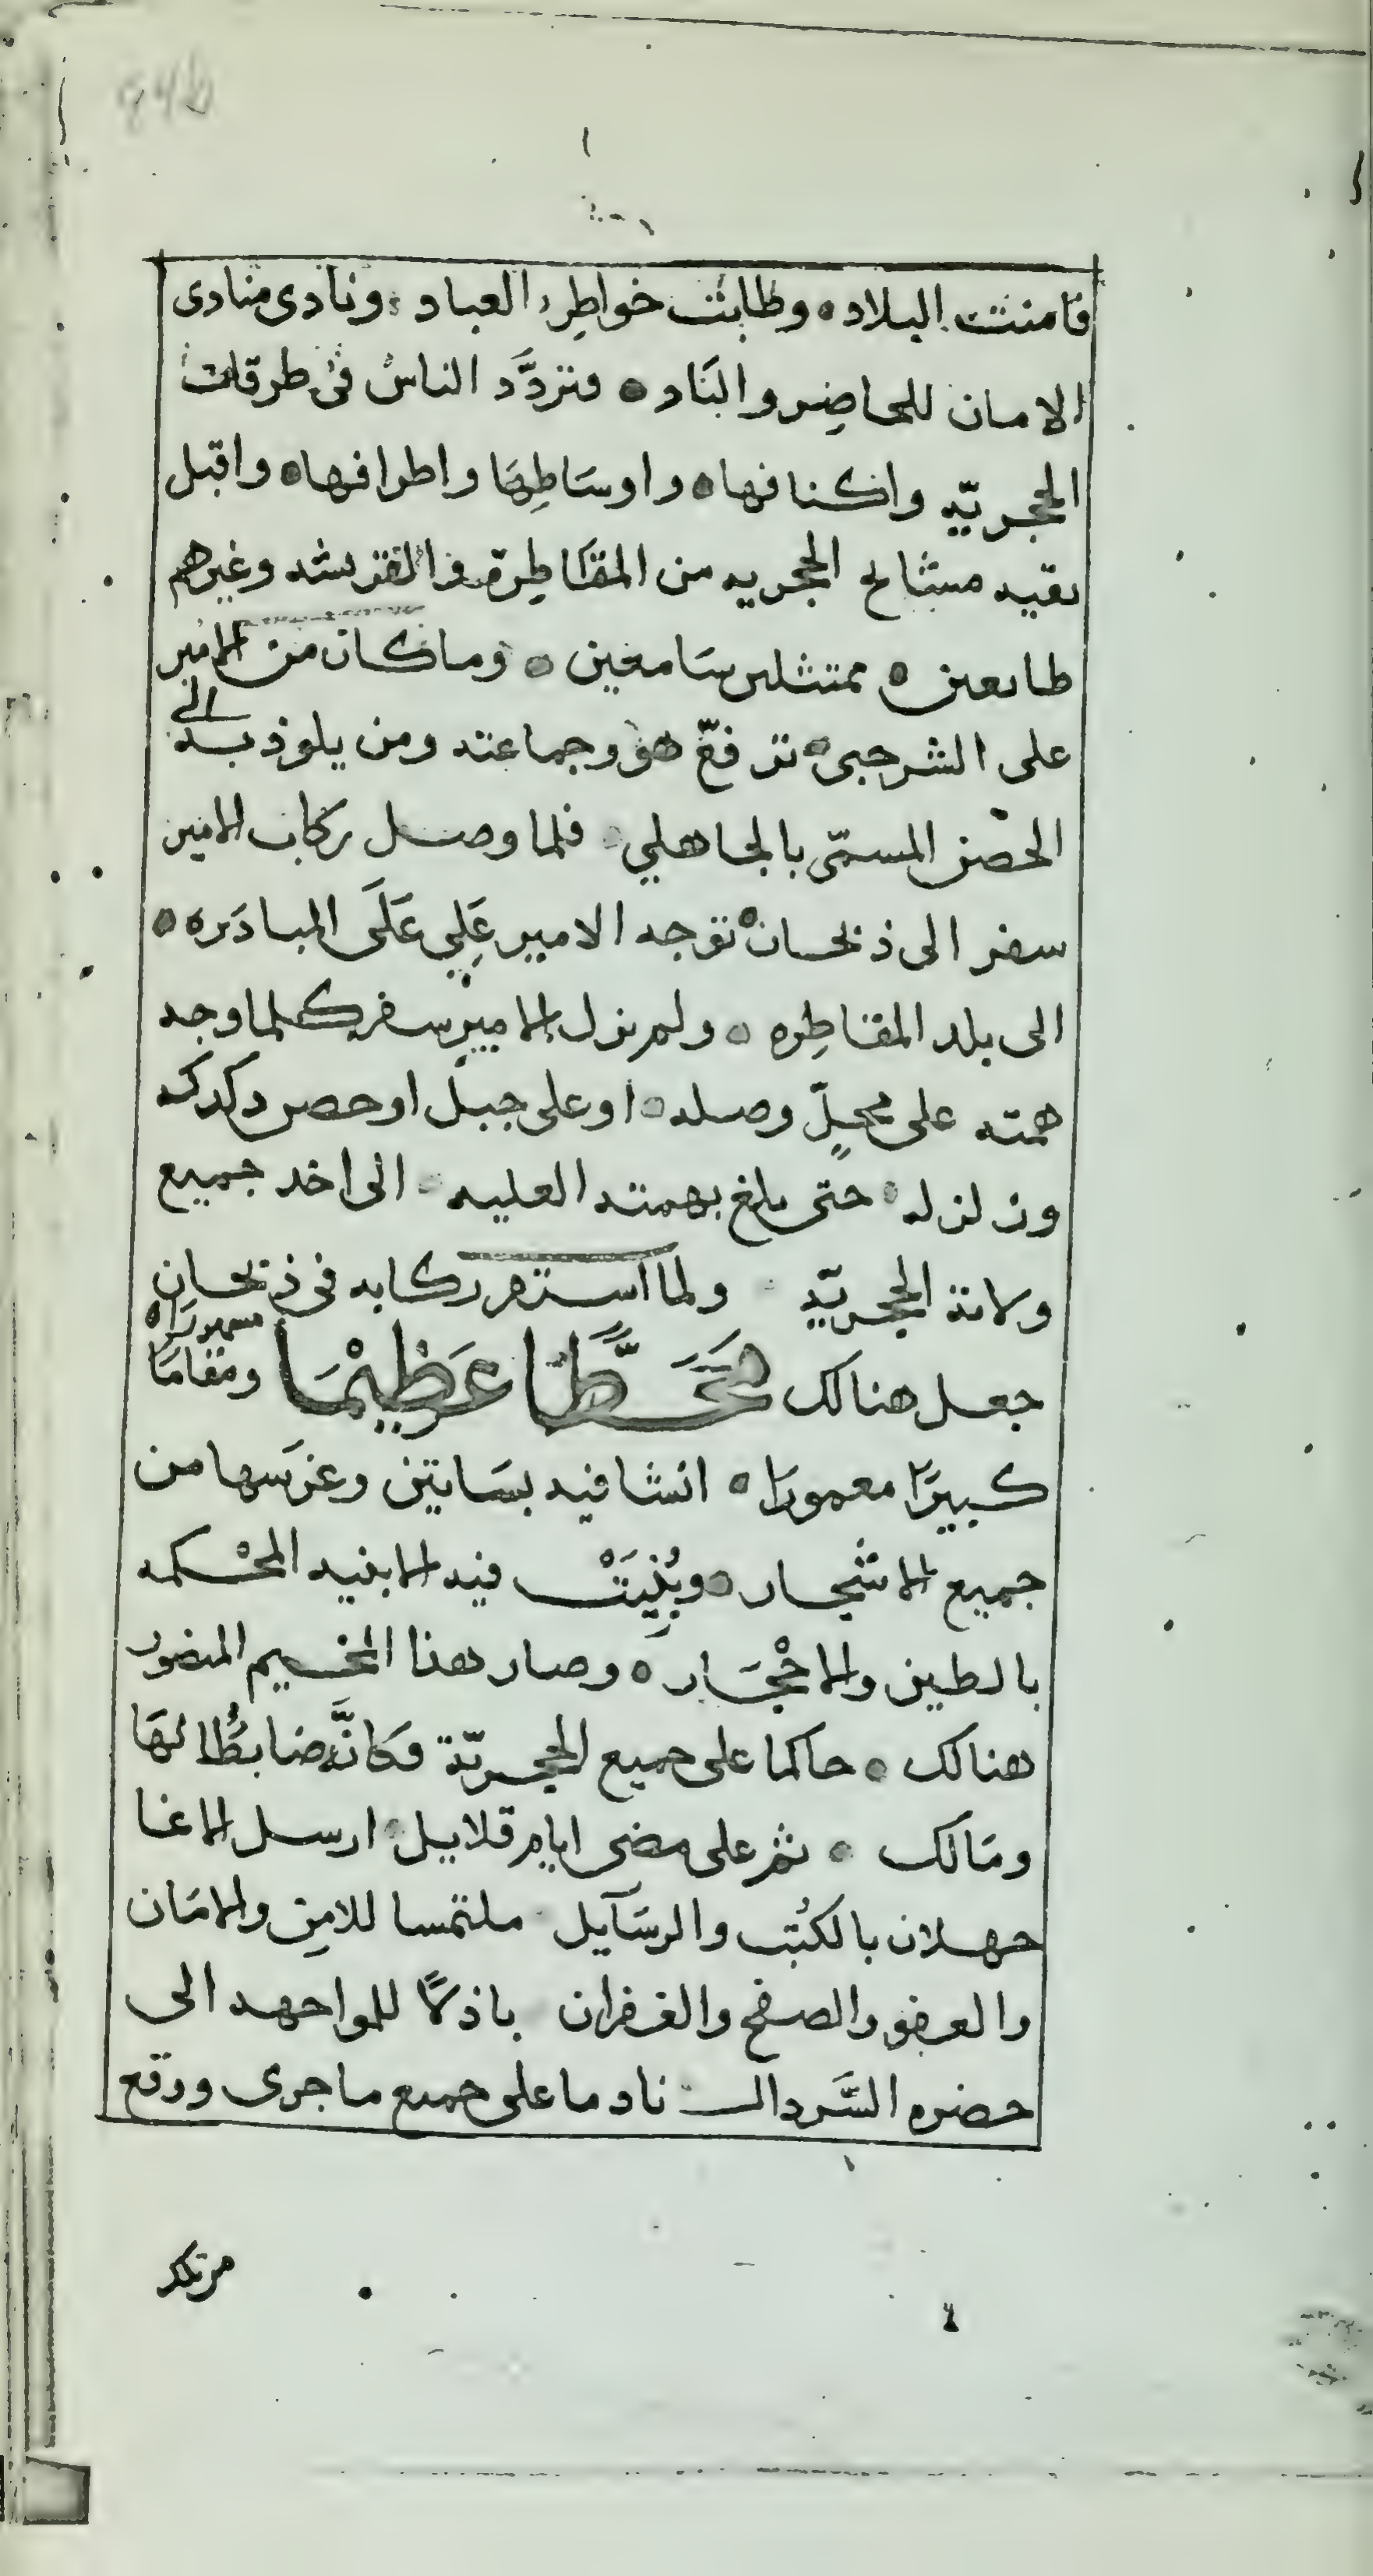 84b
فامنت البلاد ۰ وطابت خواطِر العباد ۰ ونادى منادى
الامان للحاضِر والبَاد ۰ وتردَّد الناسُ فى طرقات
الحجريّه واكنافها ۰ واوسَاطِهَا واطرافها ۰ واقبل
بقيه مشائخ الحجريه من المقَاطِرة والقريشه وغيرهم
طايعين ۰ ممتثلين سَامعين ۰ وما كان من الامير
على الشرجبى ۰ ترفّع هو وجماعته ومن يلوذ به الى
الحصْن المسمّى بالجاهلي ۰ فلما وصل ركاب الامير
سفر الى ذبحان ۰ توجه الامير عَلِي عَلَى المبادَره ۰
الى بلد المقاطِره ۰ ولم يزل الامير سفر كلما وجه
همته على محلٍّ وصله ۰ او على جبل او حصن دكدكه
وزلزله ۰ حتى بلغ بهمته العليه ۰ الى اخد جميع
ولاية الحجريّه ۰ ولما استقر ركابه فى ذبحان
جعل هنالك مَحَطًّا عَظِيْمًا مسورًا ۰ ومقامًا
كبيرًا معمورًا ۰ انشا فيه بسَاتين وغرَسها من
جميع الاشجار ۰ وبُنِيَتْ فيه الابنيه المحْكمه
بالطين والاحْجَار ۰ وصار هذا المخيم المنصور
هنالك ۰ حاكما على جميع الحجريّة فكانَّه ضابطًا لهَا
ومَالك ۰ ثم على مضى ايام قلايل ۰ ارسل الاغا
جهلان بالكُتب والرسَآيل ۰ ملتمسا للامن والامَان
والعفو والصفح والغفران ۰ باذلًا للمواجهه الى
حضره السَّردار ۰ نادما على جميع ما جرى ووقع